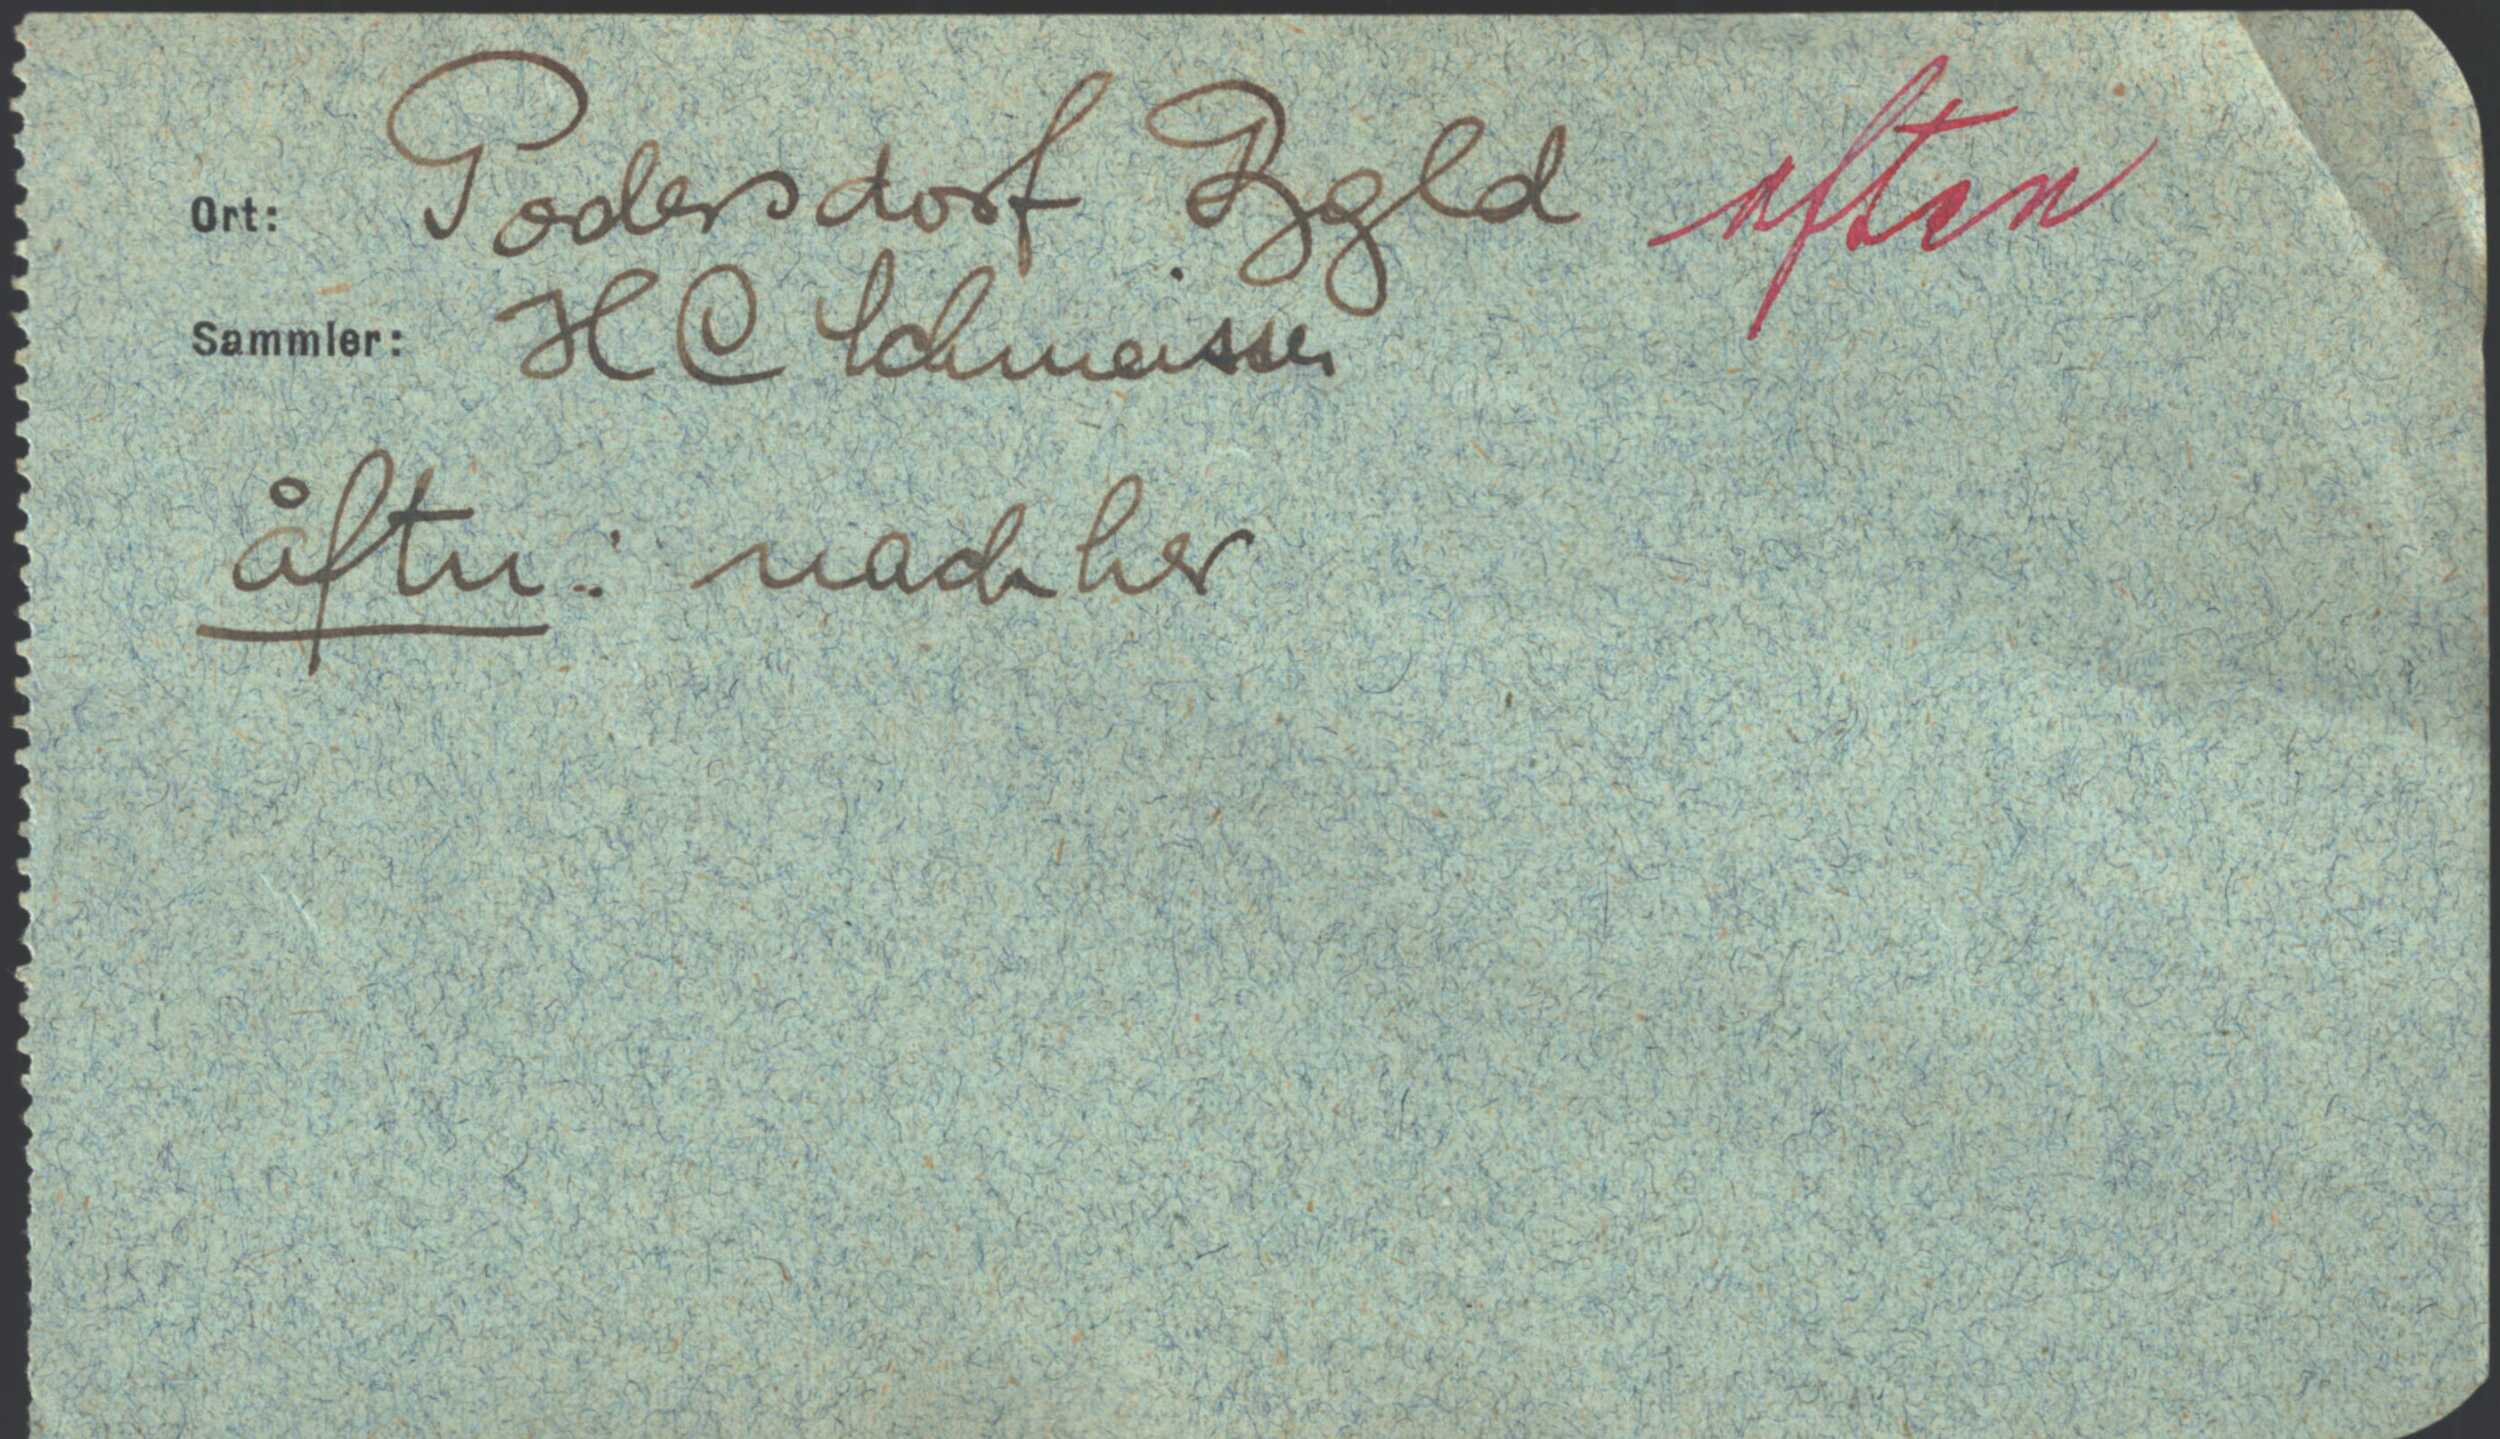 Ort: Podersdorf Bgld aften
Sammler: H C Schmeisser
åftn: nachher